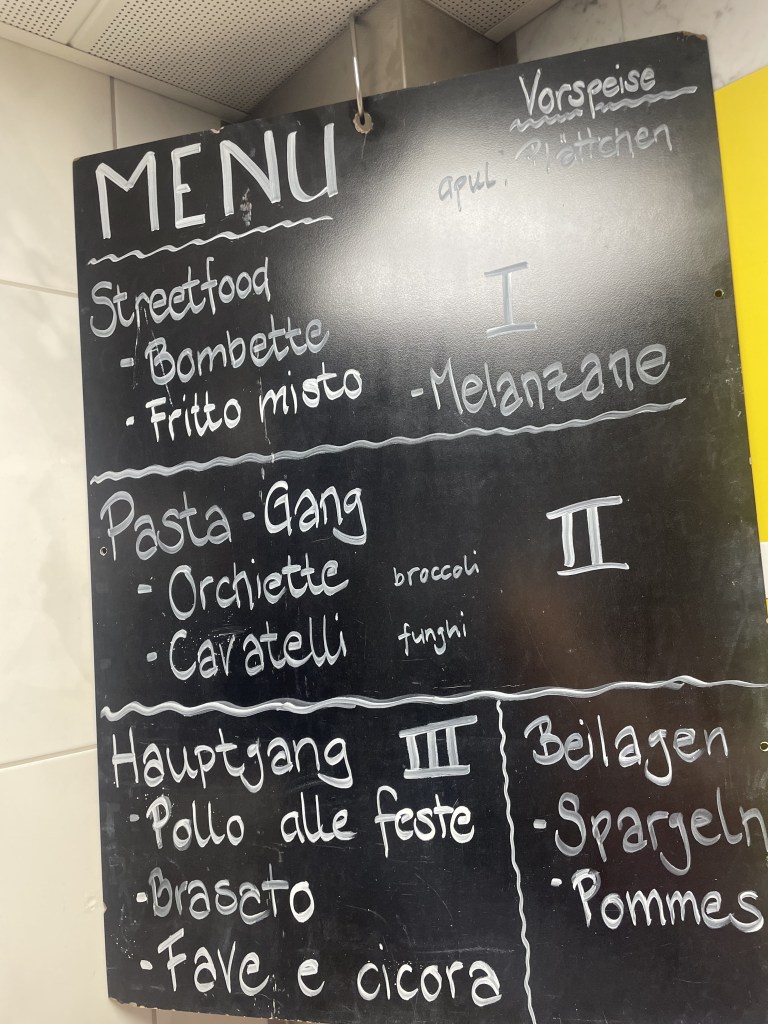 MENU
Vorspeise
apul. Plättchen
Streetfood
I
- Bombette
- Fritto misto
- Melanzane
Pasta-Gang
II
- Orchiette broccoli
- Cavatelli funghi
Hauptgang III
- Pollo alle feste
- Brasato
- Fave e cicora
Beilagen
- Spargeln
- Pommes